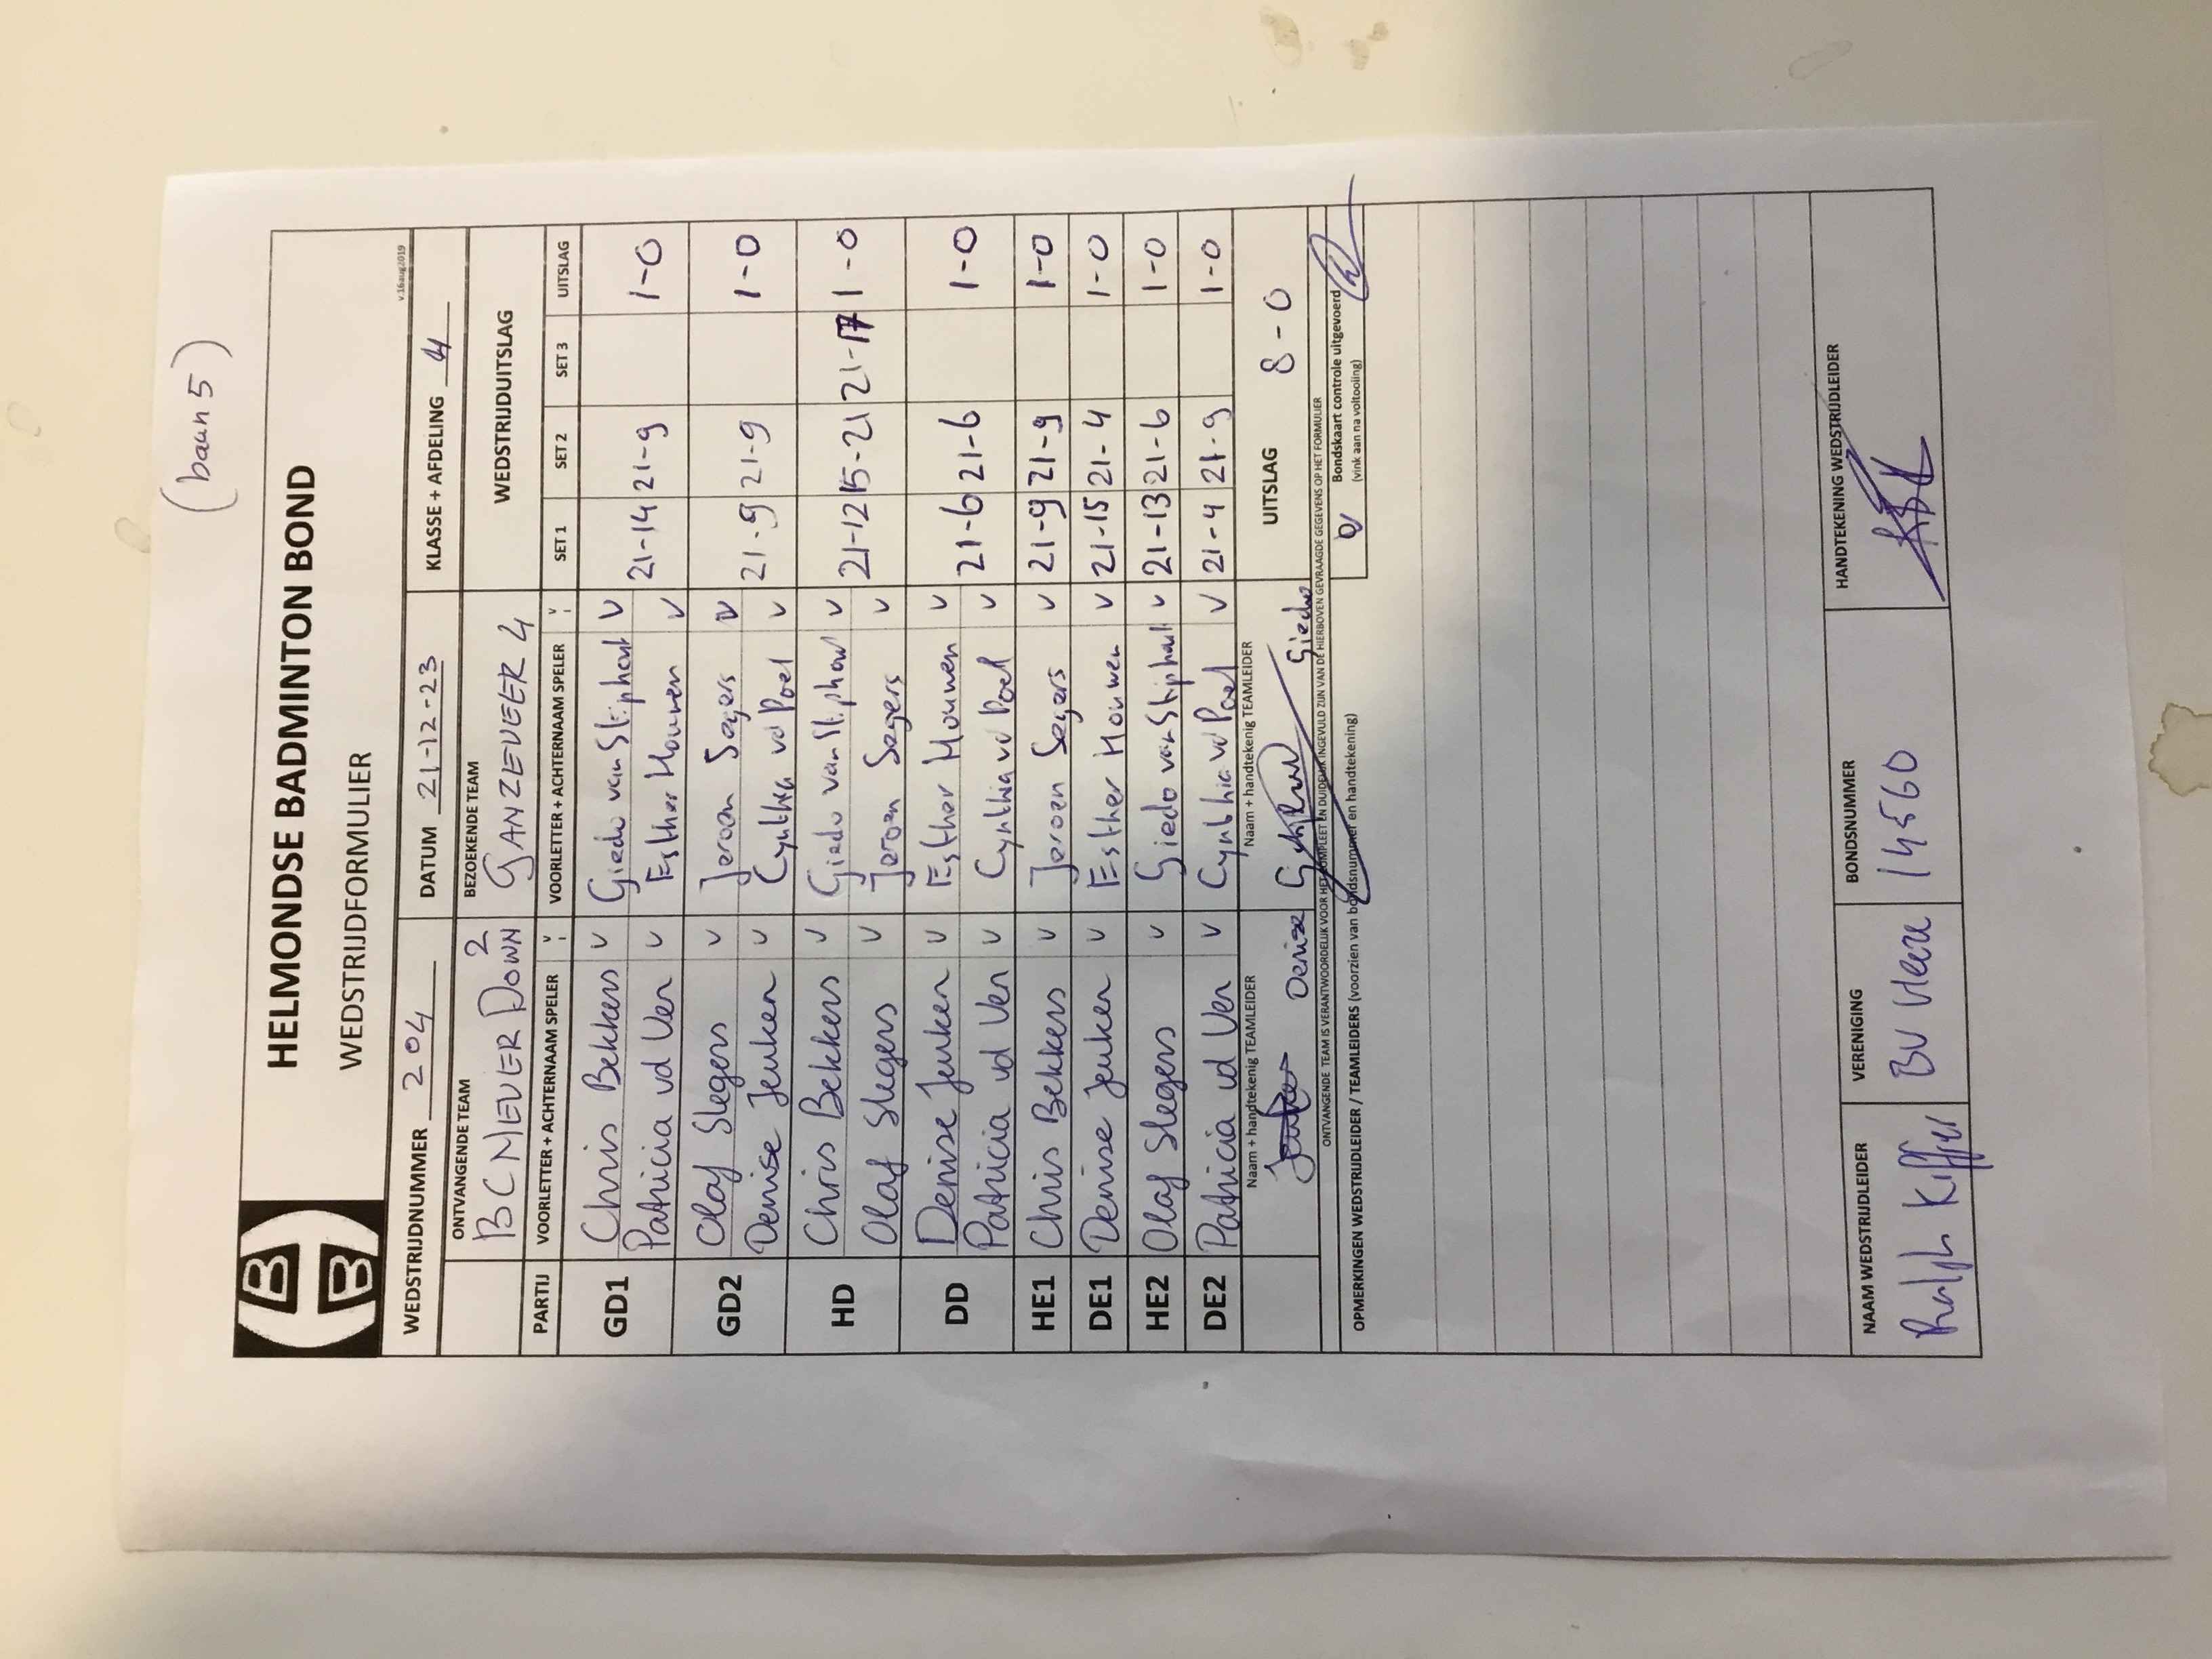 (baan 5)
HELMONDSE BADMINTON BOND
WEDSTRIJDFORMULIER
v.16aug2019
WEDSTRIJDNUMMER 204 DATUM 21-12-23 KLASSE + AFDELING 4
ONTVANGENDE TEAM BEZOEKENDE TEAM WEDSTRIJDUITSLAG
BC MEVER DOWN 2 GANZEVEER 4
PARTIJ VOORLETTER + ACHTERNAAM SPELER v VOORLETTER + ACHTERNAAM SPELER v SET 1 SET 2 SET 3 UITSLAG
GD1 Chris Bekkers v Giedo van Stiphout v
Patricia vd Ven v Esther Houwen v 21-14 21-9 1-0
GD2 Olaf Slegers v Jeroen Segers v
Denise Jeuken v Cynthia vd Poel v 21-9 21-9 1-0
HD Chris Bekkers v Giedo van Stiphout v 21-12 15-21 21-17 1-0
Olaf Slegers v Jeroen Segers v
DD Denise Jeuken v Esther Houwen v
Patricia vd Ven v Cynthia vd Poel v 21-6 21-6 1-0
HE1 Chris Bekkers v Jeroen Segers v 21-9 21-9 1-0
DE1 Denise Jeuken v Esther Houwen v 21-15 21-4 1-0
HE2 Olaf Slegers v Giedo van Stiphout v 21-13 21-6 1-0
DE2 Patricia vd Ven v Cynthia vd Poel v 21-4 21-9 1-0
Naam + handtekenig TEAMLEIDER Naam + handtekenig TEAMLEIDER UITSLAG 8-0
Denise Giedo
ONTVANGENDE TEAM IS VERANTWOORDELIJK VOOR HET COMPLEET EN DUIDELIJK INGEVULD ZIJN VAN DE HIERBOVEN GEVRAAGDE GEGEVENS OP HET FORMULIER
Bondskaart controle uitgevoerd
(vink aan na voltooiing)
OPMERKINGEN WEDSTRIJDLEIDER / TEAMLEIDERS (voorzien van bondsnummer en handtekening)
NAAM WEDSTRIJDLEIDER VERENIGING BONDSNUMMER HANDTEKENING WEDSTRIJDLEIDER
Ralph BV 14560